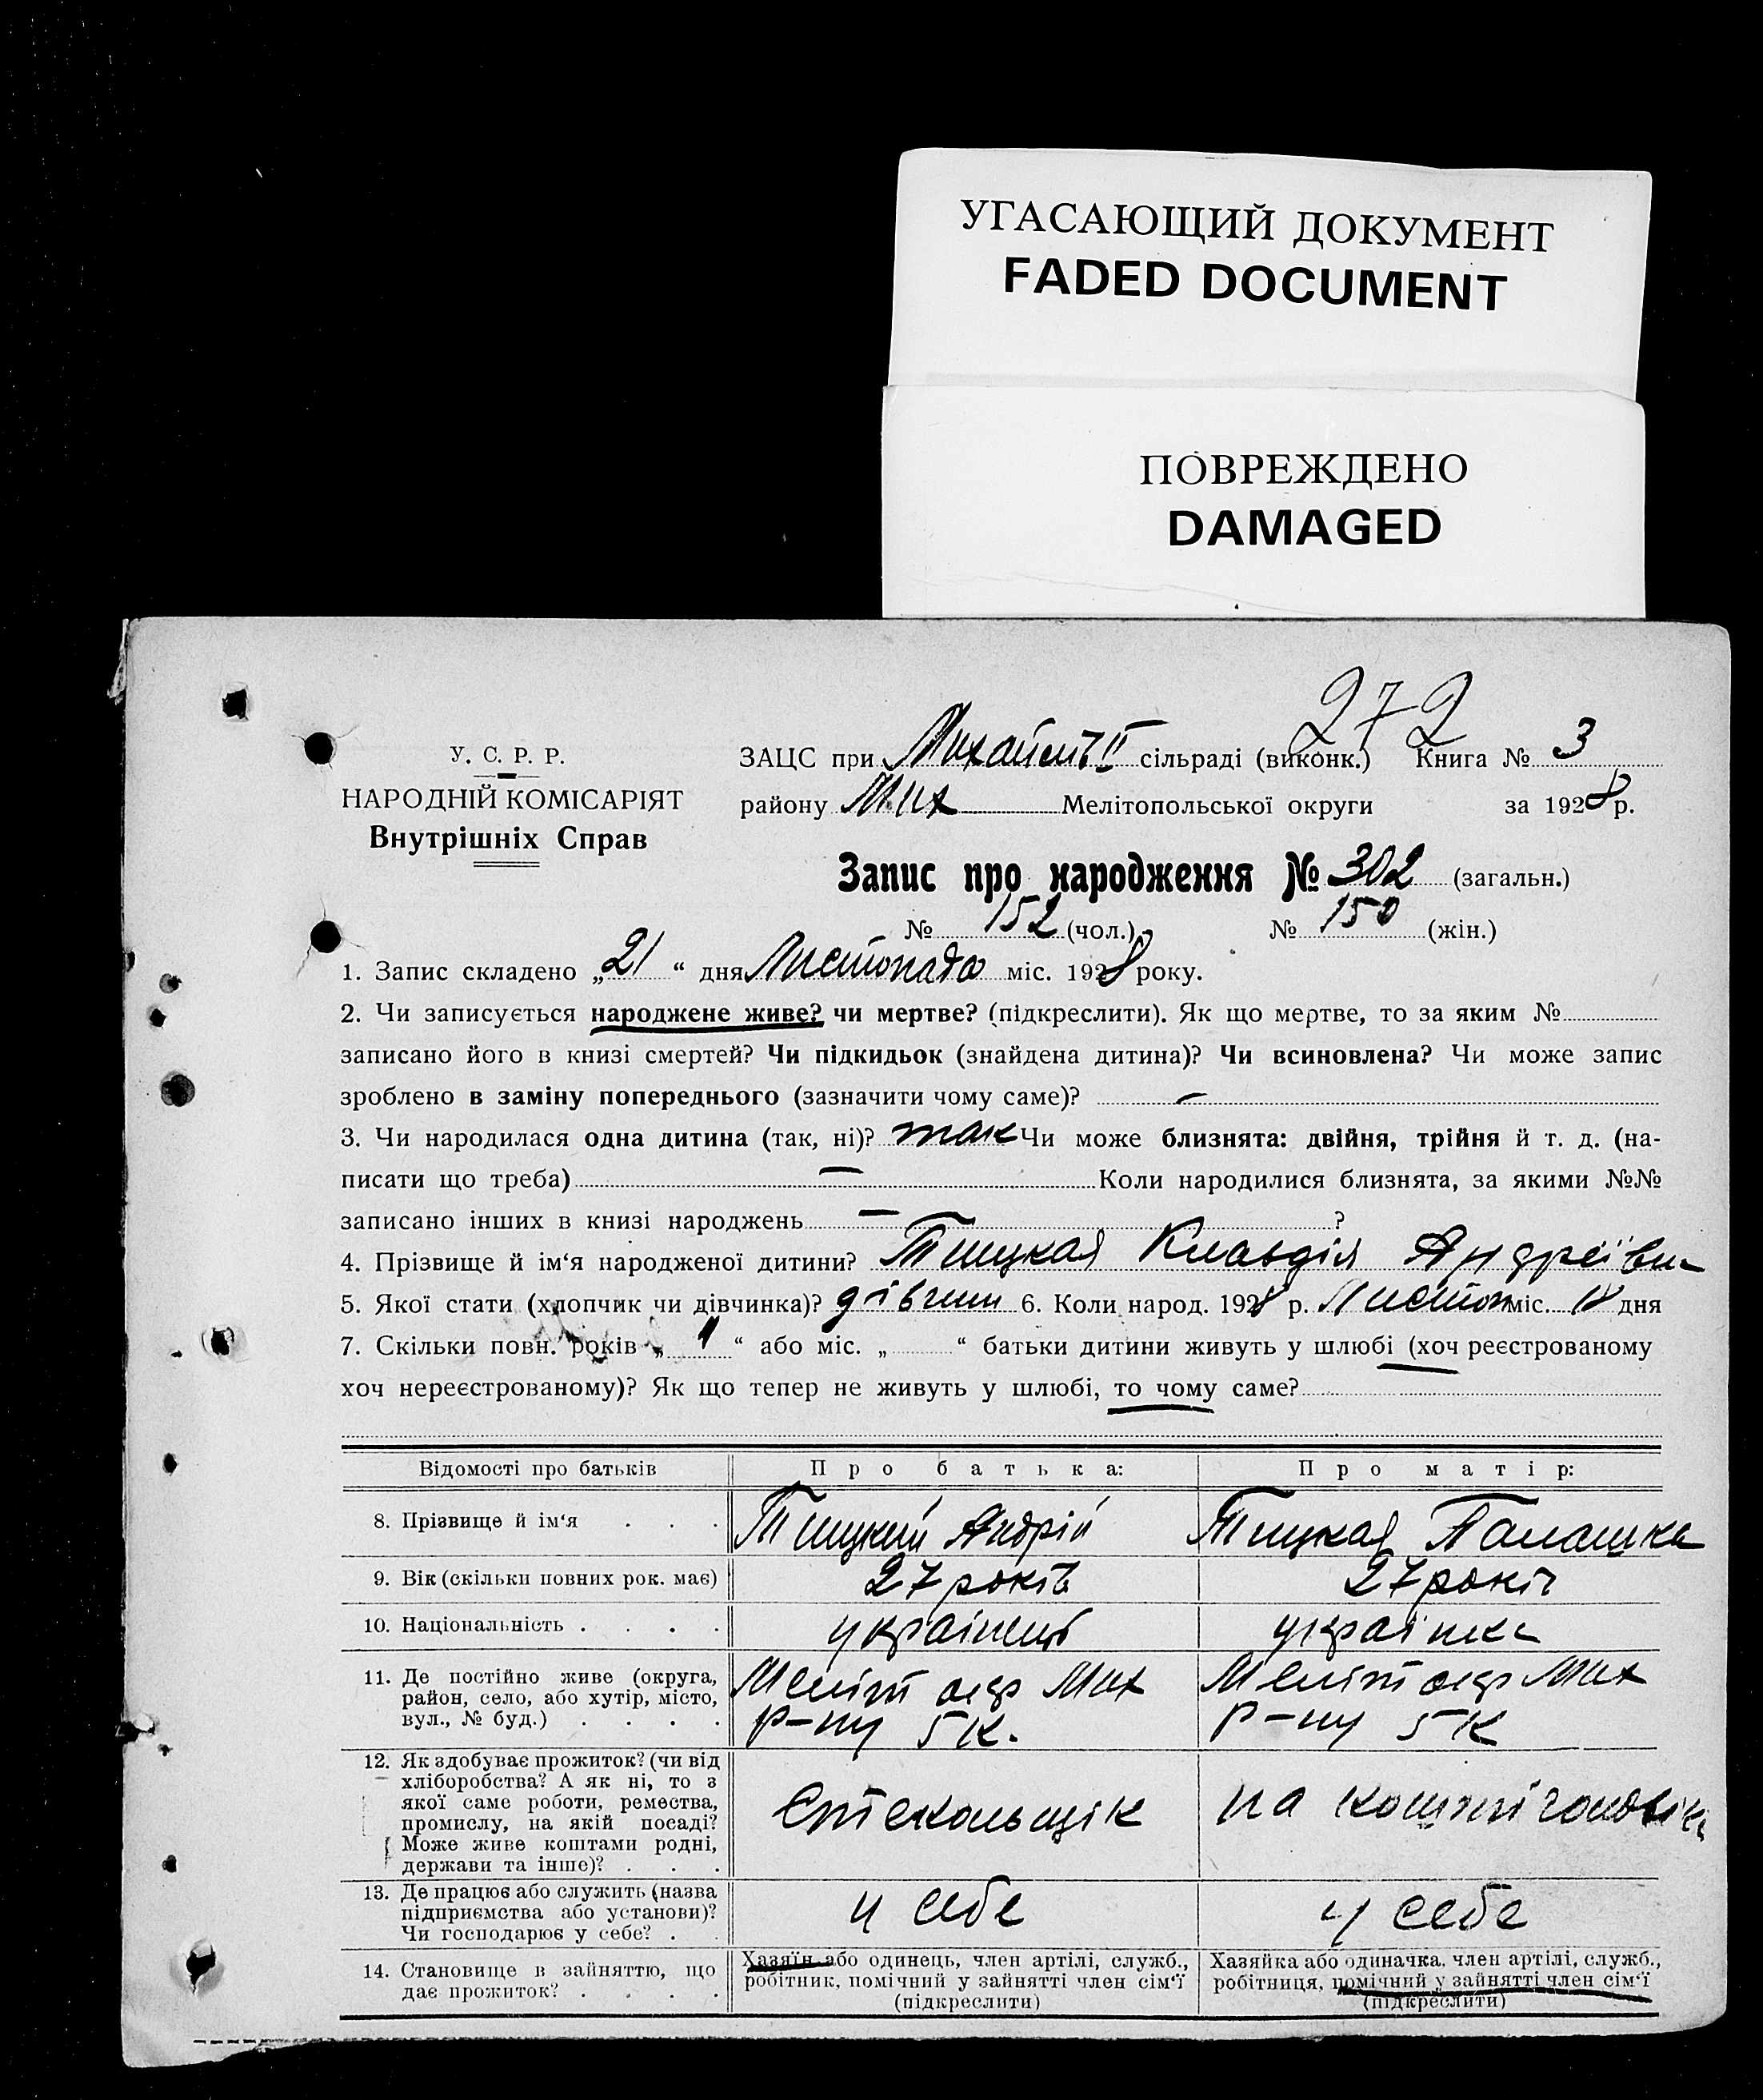 УГАСАЮЩИЙ ДОКУМЕНТ
FADED DOCUMENT
ПОВРЕЖДЕНО
DAMAGED
272
У. С. Р. Р.
НАРОДНІЙ КОМІСАРІЯТ
Внутрішніх Справ
ЗАЦС при сільраді (виконк.) Книга № 3
району Мих Мелітопольської округи за 1928 р.
Запис про народження № 302 (загальн.)
№ 152 (чол.) № 150 (жін.)
1. Запис складено „21“ дня Листопада міс. 1928 року.
2. Чи записується народжене живе? чи мертве? (підкреслити). Як що мертве, то за яким №
записано його в книзі смертей? Чи підкидьок (знайдена дитина)? Чи всиновлена? Чи може запис
зроблено в заміну попереднього (зазначити чому саме)? —
3. Чи народилася одна дитина (так, ні)? так Чи може близнята: двійня, трійня й т. д. (на-
писати що треба) — Коли народилися близнята, за якими №№
записано інших в книзі народжень — ?
4. Прізвище й ім‘я народженої дитини? Тицкая Клавдія
5. Якої стати (хлопчик чи дівчинка)? дівчин 6. Коли народ. 1928 р. Листоп міс. 18 дня
7. Скільки повн. років „ “ або міс. „ “ батьки дитини живуть у шлюбі (хоч реєстрованому
хоч нереєстрованому)? Як що тепер не живуть у шлюбі, то чому саме?
Відомості про батьків Про батька: Про матір:
8. Прізвище й ім‘я . . . Тицкий Андрій Тицкая Палашка
9. Вік (скільки повних рок. має) 27 років 27 років
10. Національність . . . . українець українка
11. Де постійно живе (округа, район, село, або хутір, місто, вул., № буд.) . . . . Меліт окр Мих р-ну 5 к. Меліт окр Мих р-ну 5 к
12. Як здобуває прожиток? (чи від хліборобства? А як ні, то з якої саме роботи, ремества, промислу, на якій посаді? Може живе коштами родні, держави та інше)? . . . Стекольщік на кошти
13. Де працює або служить (назва підприємства або установи)? Чи господарює у себе? . . у себе у себе
14. Становище в зайняттю, що дає прожиток? . . . . Хазяїн або одинець, член артілі, служб., робітник, помічний у зайнятті член сім‘ї (підкреслити) Хазяйка або одиначка, член артілі, служб., робітниця, помічний у зайнятті член сім‘ї (підкреслити)